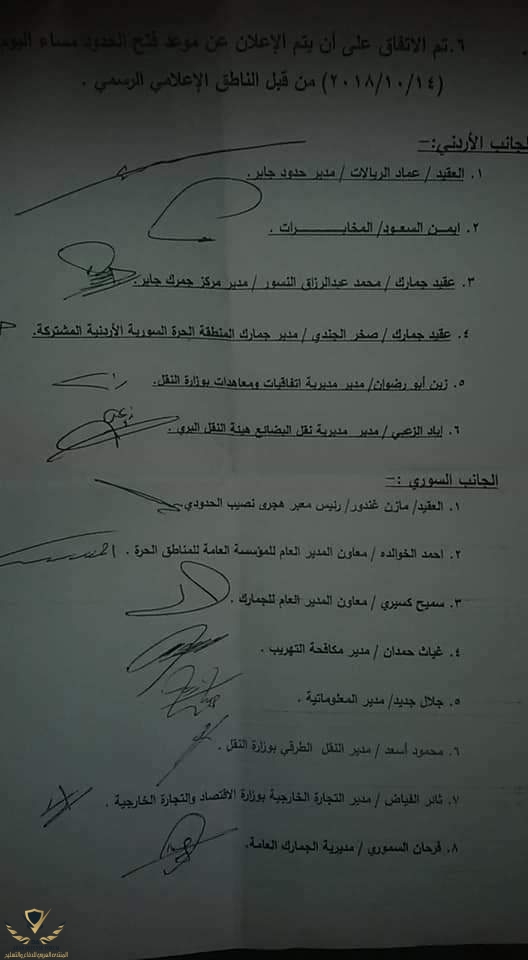 ٦. تم الاتفاق على أن يتم الإعلان عن موعد فتح الحدود مساء اليوم
(٢٠١٨/١٠/١٤) من قبل الناطق الإعلامي الرسمي .
الجانب الأردني:-
١. العقيد / عماد الريالات / مدير حدود جابر.
٢. ايمـن السعـود/ المخابـــــــرات .
٣. عقيد جمارك / محمد عبدالرزاق النسور / مدير مركز جمرك جابر.
٤. عقيد جمارك / صخر الجندي / مدير جمارك المنطقة الحرة السورية الأردنية المشتركة.
٥. زين أبو رضوان/ مدير مديرية اتفاقيات ومعاهدات بوزارة النقل.
٦. إياد الزعبي / مدير مديرية نقل البضائع هيئة النقل البري .
الجانب السوري :-
١. العقيد/ مازن غندور/ رئيس معبر هجرى نصيب الحدودي.
٢. احمد الخوالده / معاون المدير العام للمؤسسة العامة للمناطق الحرة .
٣. سميح كسيري / معاون المدير العام للجمارك .
٤. غياث حمدان / مدير مكافحة التهريب .
٥. جلال جديد/ مدير المعلوماتية .
٦. محمود أسعد / مدير النقل الطرقي بوزارة النقل .
٧. ثائر الفياض / مدير التجارة الخارجية بوزارة الاقتصاد والتجارة الخارجية .
٨. فرحان السموري / مديرية الجمارك العامة.
المنتدى العربي للدفاع والتسليح